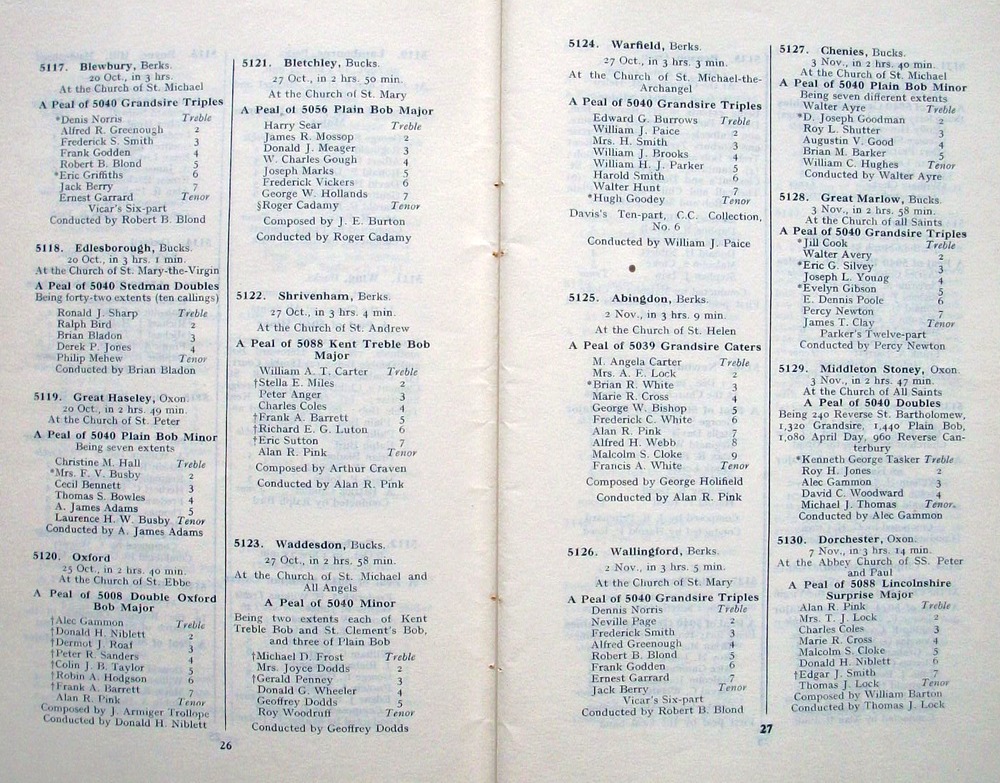 5117. Blewbury, Berks.
20 Oct., in 3 hrs.
At the Church of St. Michael
A Peal of 5040 Grandsire Triples
*Denis Norris Treble
Alfred R. Greenough 2
Frederick S. Smith 3
Frank Godden 4
Robert B. Blond 5
*Eric Griffiths 6
Jack Berry 7
Ernest Garrard Tenor
Vicar's Six-part
Conducted by Robert B. Blond
5118. Edlesborough, Bucks.
20 Oct., in 3 hrs. 1 min.
At the Church of St. Mary-the-Virgin
A Peal of 5040 Stedman Doubles
Being forty-two extents (ten callings)
Ronald J. Sharp Treble
Ralph Bird 2
Brian Bladon 3
Derek P. Jones 4
Philip Mehew Tenor
Conducted by Brian Bladon
5119. Great Haseley, Oxon.
20 Oct., in 2 hrs. 49 min.
At the Church of St. Peter
A Peal of 5040 Plain Bob Minor
Being seven extents
Christine M. Hall Treble
*Mrs. F. V. Busby 2
Cecil Bennett 3
Thomas S. Bowles 4
A. James Adams 5
Laurence H. W. Busby Tenor
Conducted by A. James Adams
5120. Oxford
25 Oct., in 2 hrs. 40 min.
At the Church of St. Ebbe
A Peal of 5008 Double Oxford
Bob Major
†Alec Gammon Treble
†Donald H. Niblett 2
†Dermot J. Roaf 3
†Peter R. Sanders 4
†Colin J. B. Taylor 5
†Robin A. Hodgson 6
†Frank A. Barrett 7
Alan R. Pink Tenor
Composed by J. Armiger Trollope
Conducted by Donald H. Niblett
5121. Bletchley, Bucks.
27 Oct., in 2 hrs. 50 min.
At the Church of St. Mary
A Peal of 5056 Plain Bob Major
Harry Sear Treble
James R. Mossop 2
Donald J. Meager 3
W. Charles Gough 4
Joseph Marks 5
Frederick Vickers 6
George W. Hollands 7
§Roger Cadamy Tenor
Composed by J. E. Burton
Conducted by Roger Cadamy
5122. Shrivenham, Berks.
27 Oct., in 3 hrs. 4 min.
At the Church of St. Andrew
A Peal of 5088 Kent Treble Bob
Major
William A. T. Carter Treble
†Stella E. Miles 2
Peter Anger 3
Charles Coles 4
†Frank A. Barrett 5
†Richard E. G. Luton 6
†Eric Sutton 7
Alan R. Pink Tenor
Composed by Arthur Craven
Conducted by Alan R. Pink
5123. Waddesdon, Bucks.
27 Oct., in 2 hrs. 58 min.
At the Church of St. Michael and
All Angels
A Peal of 5040 Minor
Being two extents each of Kent
Treble Bob and St. Clement's Bob,
and three of Plain Bob
†Michael D. Frost Treble
Mrs. Joyce Dodds 2
†Gerald Penney 3
Donald G. Wheeler 4
Geoffrey Dodds 5
Roy Woodruff Tenor
Conducted by Geoffrey Dodds
26
5124. Warfield, Berks.
27 Oct., in 3 hrs. 3 min.
At the Church of St. Michael-the-
Archangel
A Peal of 5040 Grandsire Triples
Edward G. Burrows Treble
William J. Paice 2
Mrs. H. Smith 3
William J. Brooks 4
William H. J. Parker 5
Harold Smith 6
Walter Hunt 7
*Hugh Goodey Tenor
Davis's Ten-part, C.C. Collection,
No. 6
Conducted by William J. Paice
5125. Abingdon, Berks.
2 Nov., in 3 hrs. 9 min.
At the Church of St. Helen
A Peal of 5039 Grandsire Caters
M. Angela Carter Treble
Mrs. A. E. Lock 2
*Brian R. White 3
Marie R. Cross 4
George W. Bishop 5
Frederick C. White 6
Alan R. Pink 7
Alfred H. Webb 8
Malcolm S. Cloke 9
Francis A. White Tenor
Composed by George Holifield
Conducted by Alan R. Pink
5126. Wallingford, Berks.
2 Nov., in 3 hrs. 5 min.
At the Church of St. Mary
A Peal of 5040 Grandsire Triples
Dennis Norris Treble
Neville Page 2
Frederick Smith 3
Alfred Greenough 4
Robert B. Blond 5
Frank Godden 6
Ernest Garrard 7
Jack Berry Tenor
Vicar's Six-part
Conducted by Robert B. Blond
5127. Chenies, Bucks.
3 Nov., in 2 hrs. 40 min.
At the Church of St. Michael
A Peal of 5040 Plain Bob Minor
Being seven different extents
Walter Ayre Treble
*D. Joseph Goodman 2
Roy L. Shutter 3
Augustin V. Good 4
Brian M. Barker 5
William C. Hughes Tenor
Conducted by Walter Ayre
5128. Great Marlow, Bucks.
3 Nov., in 2 hrs. 58 min.
At the Church of all Saints
A Peal of 5040 Grandsire Triples
*Jill Cook Treble
Walter Avery 2
*Eric G. Silvey 3
Joseph L. Young 4
*Evelyn Gibson 5
E. Dennis Poole 6
Percy Newton 7
James T. Clay Tenor
Parker's Twelve-part
Conducted by Percy Newton
5129. Middleton Stoney, Oxon.
3 Nov., in 2 hrs. 47 min.
At the Church of All Saints
A Peal of 5040 Doubles
Being 240 Reverse St. Bartholomew,
1,320 Grandsire, 1,440 Plain Bob,
1,080 April Day, 960 Reverse Can-
terbury
*Kenneth George Tasker Treble
Roy H. Jones 2
Alec Gammon 3
David C. Woodward 4
Michael J. Thomas Tenor.
Conducted by Alec Gammon
5130. Dorchester, Oxon.
7 Nov., in 3 hrs. 14 min.
At the Abbey Church of SS. Peter
and Paul
A Peal of 5088 Lincolnshire
Surprise Major
Alan R. Pink Treble
Mrs. T. J. Lock 2
Charles Coles 3
Marie R. Cross 4
Malcolm S. Cloke 5
Donald H. Niblett 6
†Edgar J. Smith 7
Thomas J. Lock Tenor
Composed by William Barton
Conducted by Thomas J. Lock
27